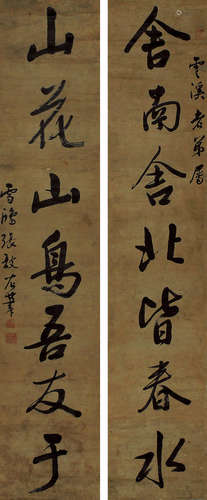 雲溪老弟屬
舍南舍北皆春水
山花山鳥吾友于
雪鴻張敔左筆